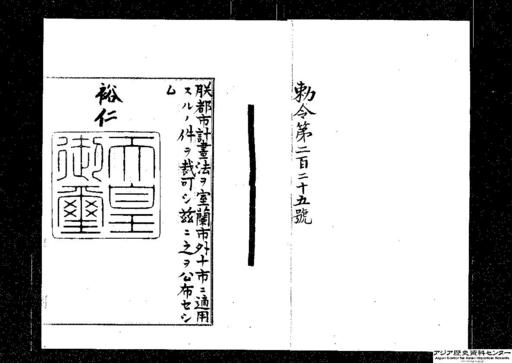 勅令第二百二十五號
朕都市計畫法ヲ室蘭市外十市ニ適用
スルノ件ヲ裁可シ玆ニ之ヲ公布セシ
ム
裕仁
天皇
御璽
アジア歴史資料センター
Japan Center for Asian Historical Records